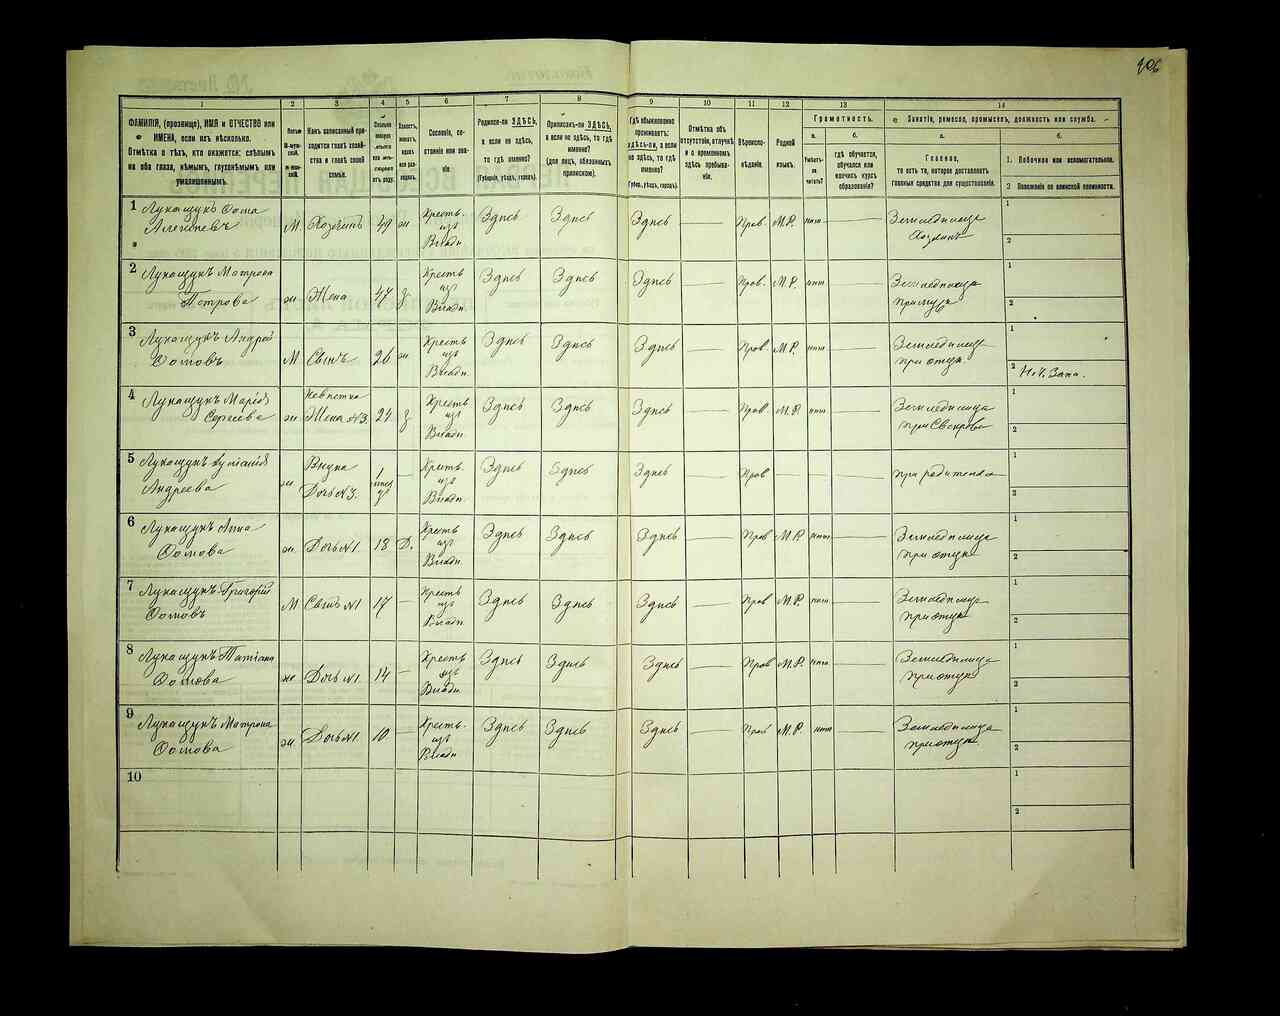 406
1
2
3
4
5
6
7
8
9
10
11
12
13
14
ФАМИЛІЯ, (прозвище), ИМЯ и ОТЧЕСТВО или
ИМЕНА, если ихъ нѣсколько.
Отмѣтка о тѣхъ, кто окажется: слѣпымъ
на оба глаза, нѣмымъ, глухонѣмымъ или
умалишеннымъ.
Полъ.
М-муж-
ской.
Ж-жен-
скій.
Какъ записанный при-
ходится главѣ хозяй-
ства и главѣ своей
семьи.
Сословіе, со-
стояніе или зва-
ніе.
Родился-ли ЗДѢСЬ,
а если не здѣсь,
то гдѣ именно?
(Губернія, уѣздъ, городъ).
Приписанъ-ли ЗДѢСЬ,
а если не здѣсь, то гдѣ
именно?
(для лицъ, обязанныхъ
припискою).
Гдѣ обыкновенно
проживаетъ:
здѣсь-ли, а если
не здѣсь, то гдѣ
именно?
(Губер., уѣздъ, городъ).
Отмѣтка объ
отсутствіи, отлучкѣ
и о временномъ
здѣсь пребыва-
ніи.
Вѣроиспо-
вѣданіе.
Родной
языкъ.
Грамотность.
а.
Умѣетъ-
ли чи-
тать?
б.
гдѣ обучается,
обучался или
кончилъ курсъ
образованія?
Занятіе, ремесло, промыселъ, должность или служба.
а.
Главное,
то есть то, которое доставляетъ
главныя средства для существованія.
б.
1. Побочное или вспомогательное.
2 Положеніе по воинской повинности.
1 Лукащукъ Ѳома
Алексѣевъ
М. Хозяинъ 49 ж
Крестъ.
изъ
Владѣ.
Здѣсь Здѣсь Здѣсь — Прав. М.Р. нѣт —
Земледѣлецъ
Хозяинъ
1
2
2 Лукащукъ Матрона
Петрова
ж Жена 47 з
Крестъ
изъ
Владѣ.
Здѣсь Здѣсь Здѣсь — Прав. М.Р. нѣт —
Земледѣлица
при мужѣ
1
2
3 Лукащукъ Андрей
Ѳомовъ
М Сынъ 26 ж
Крестъ
изъ
Владѣ.
Здѣсь Здѣсь Здѣсь — Прав. М.Р. нѣт —
Земледѣлецъ
при отцѣ
1
2 Н. Ч. Запа.
4 Лукащукъ Марія
Сергѣева
ж
Невѣстка
Жена №3. 24 з
Крестъ
изъ
Владѣ.
Здѣсь Здѣсь Здѣсь — Прав М.Р. нѣт —
Земледѣлица
при Свекровѣ
1
2
5 Лукащукъ
Андреева
ж
Внука
Дочь №3.
1
—
Крестъ.
изъ
Владѣ.
Здѣсь Здѣсь Здѣсь — Прав — — —
при родителяхъ
1
2
6 Лукащукъ Анна
Ѳомова
ж Дочь №1. 18 Д.
Крестъ
изъ
Владѣ.
Здѣсь Здѣсь Здѣсь — Прав М.Р. нѣт —
Земледѣлица
при отцѣ
1
2
7 Лукащукъ Григорій
Ѳомовъ
М Сынъ №1 17 —
Крестъ
изъ
Владѣ.
Здѣсь Здѣсь Здѣсь — Прав М.Р. нѣт —
Земледѣлецъ
при отцѣ
1
2
8 Лукащукъ Татіана
Ѳомова
ж Дочь №1. 14 —
Крестъ
изъ
Владѣ.
Здѣсь Здѣсь Здѣсь — Прав М.Р. нѣт —
Земледѣлица
при отцѣ
1
2
9 Лукащукъ Матрона
Ѳомова
ж Дочь №1. 10 —
Крестъ.
изъ
Владѣ.
Здѣсь Здѣсь Здѣсь — Прав М.Р. нѣт —
Земледѣлица
при отцѣ
1
2
10
1
2